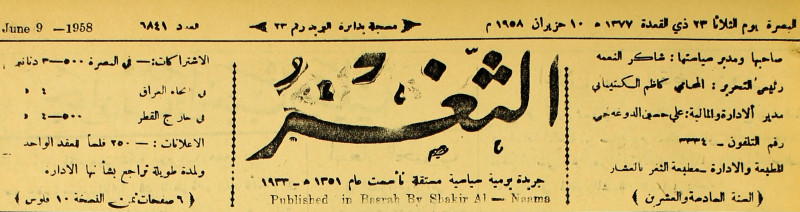 البصرة يوم الثلاثا ٢٣ ذي القعدة ١٣٧٧ ه ١٠ حزيران ١٩٥٨ م
مسجلة بدائرة البريد رقم ٢٣
عدد ٦٨٤١
June 9 —1958
صاحبها ومدير سياستها : شاكر النعمه
رئيس التحرير : المحامي كاظم
مدير الادارة والمالية : علي حسين
رقم التلفون — ٣٣٣٤
المطبعة والادارة — مطبعة الثغر بالعشار
﴿ السنة السادسة والعشرين ﴾
الثغر
جريدة يومية سياسية مستقلة تأسست عام ١٣٥١ ه — ١٩٣٣
Published in Basrah By Shakir Al — Naama
الاشتراكات :— في البصرة ٥٠٠—٣ دنانير
في انحاء العراق ٤ »
في خارج القطر ٥٠٠—٤ »
الاعلانات :— ٢٥٠ فلساً للعقد الواحد
ولمدة طويلة تراجع بشأنها الادارة
﴿ ٦ صفحات ثمن النسخة ١٠ فلوس ﴾